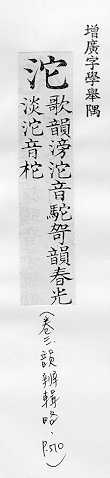 增廣字學舉隅
沱
歌韻滂沱音駝哿韻春光
淡沱音柁
(卷三韻辨輯略、P.510)